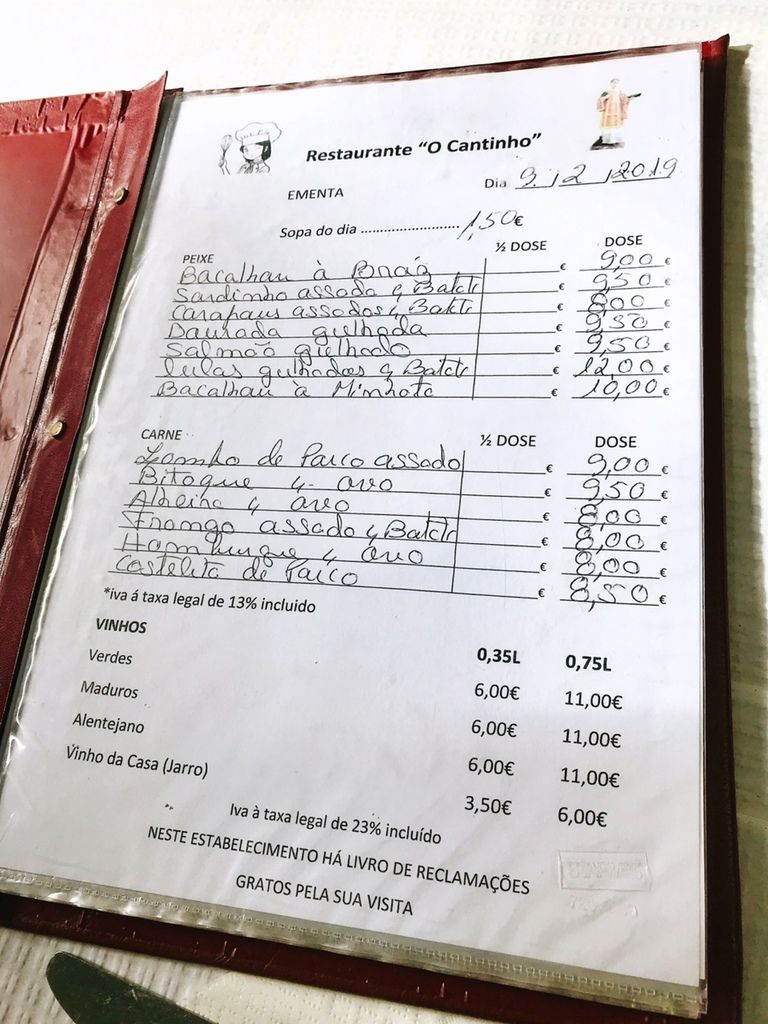 Restaurante "O Cantinho"
EMENTA Dia 9 / 2 / 2019
Sopa do dia ........................ 1,50€
PEIXE ½ DOSE DOSE
Bacalhau à Braz € 9,00 €
Sardinha assada c/ Batata € 9,50 €
Carapaus assados c/ Batata € 8,00 €
Dourada grelhada € 9,50 €
Salmão grelhado € 9,50 €
Lulas grelhadas c/ Batata € 12,00 €
Bacalhau à Minhota € 10,00 €
CARNE ½ DOSE DOSE
Lombo de Porco assado € 9,00 €
Bitoque c/ ovo € 9,50 €
Alheira c/ ovo € 8,00 €
Frango assado c/ Batata € 8,00 €
Hamburgue c/ ovo € 8,00 €
Costelita de Porco € 8,50 €
*iva á taxa legal de 13% incluido
VINHOS 0,35L 0,75L
Verdes 6,00€ 11,00€
Maduros 6,00€ 11,00€
Alentejano 6,00€ 11,00€
Vinho da Casa (Jarro) 3,50€ 6,00€
Iva à taxa legal de 23% incluído
NESTE ESTABELECIMENTO HÁ LIVRO DE RECLAMAÇÕES
GRATOS PELA SUA VISITA